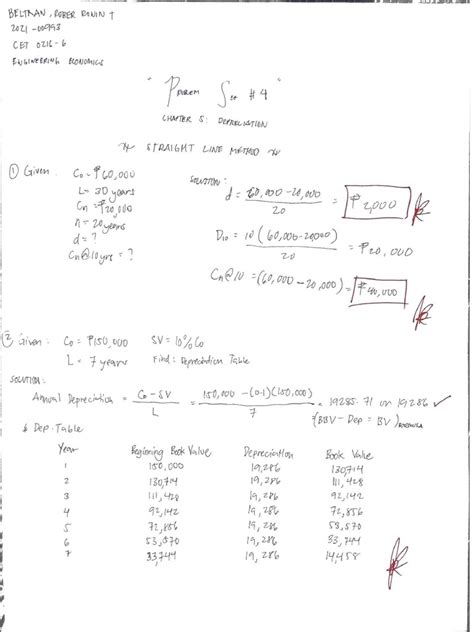 BELTRAN, ROBER RONIN T
2021-00993
CET 0216-6
ENGINEERING ECONOMICS
"Problem Set #4"
CHAPTER 5: DEPRECIATION
STRAIGHT LINE METHOD
① Given: Co = ₱60,000
L = 30 years
Cn = ₱20,000
n = 20 years
d = ?
Cn@10yrs = ?
SOLUTION:
d = 60,000 - 20,000 / 20 = ₱2,000
D10 = 10 (60,000 - 20000) / 20 = ₱20,000
Cn@10 = (60,000 - 20,000) = ₱40,000
② Given: Co = ₱150,000 SV = 10% Co
L = 7 years Find: Depreciation Table
SOLUTION:
Annual Depreciation = Co - SV / L = 150,000 - (0.1)(150,000) / 7 = 19285.71 or 19286 ✓
(BBV - Dep = BV) FORMULA
Dep. Table
Year Beginning Book Value Depreciation Book Value
1 150,000 19,286 130,714
2 130,714 19,286 111,428
3 111,428 19,286 92,142
4 92,142 19,286 72,856
5 72,856 19,286 53,570
6 53,570 19,286 33,744
7 33,744 19,286 14,458